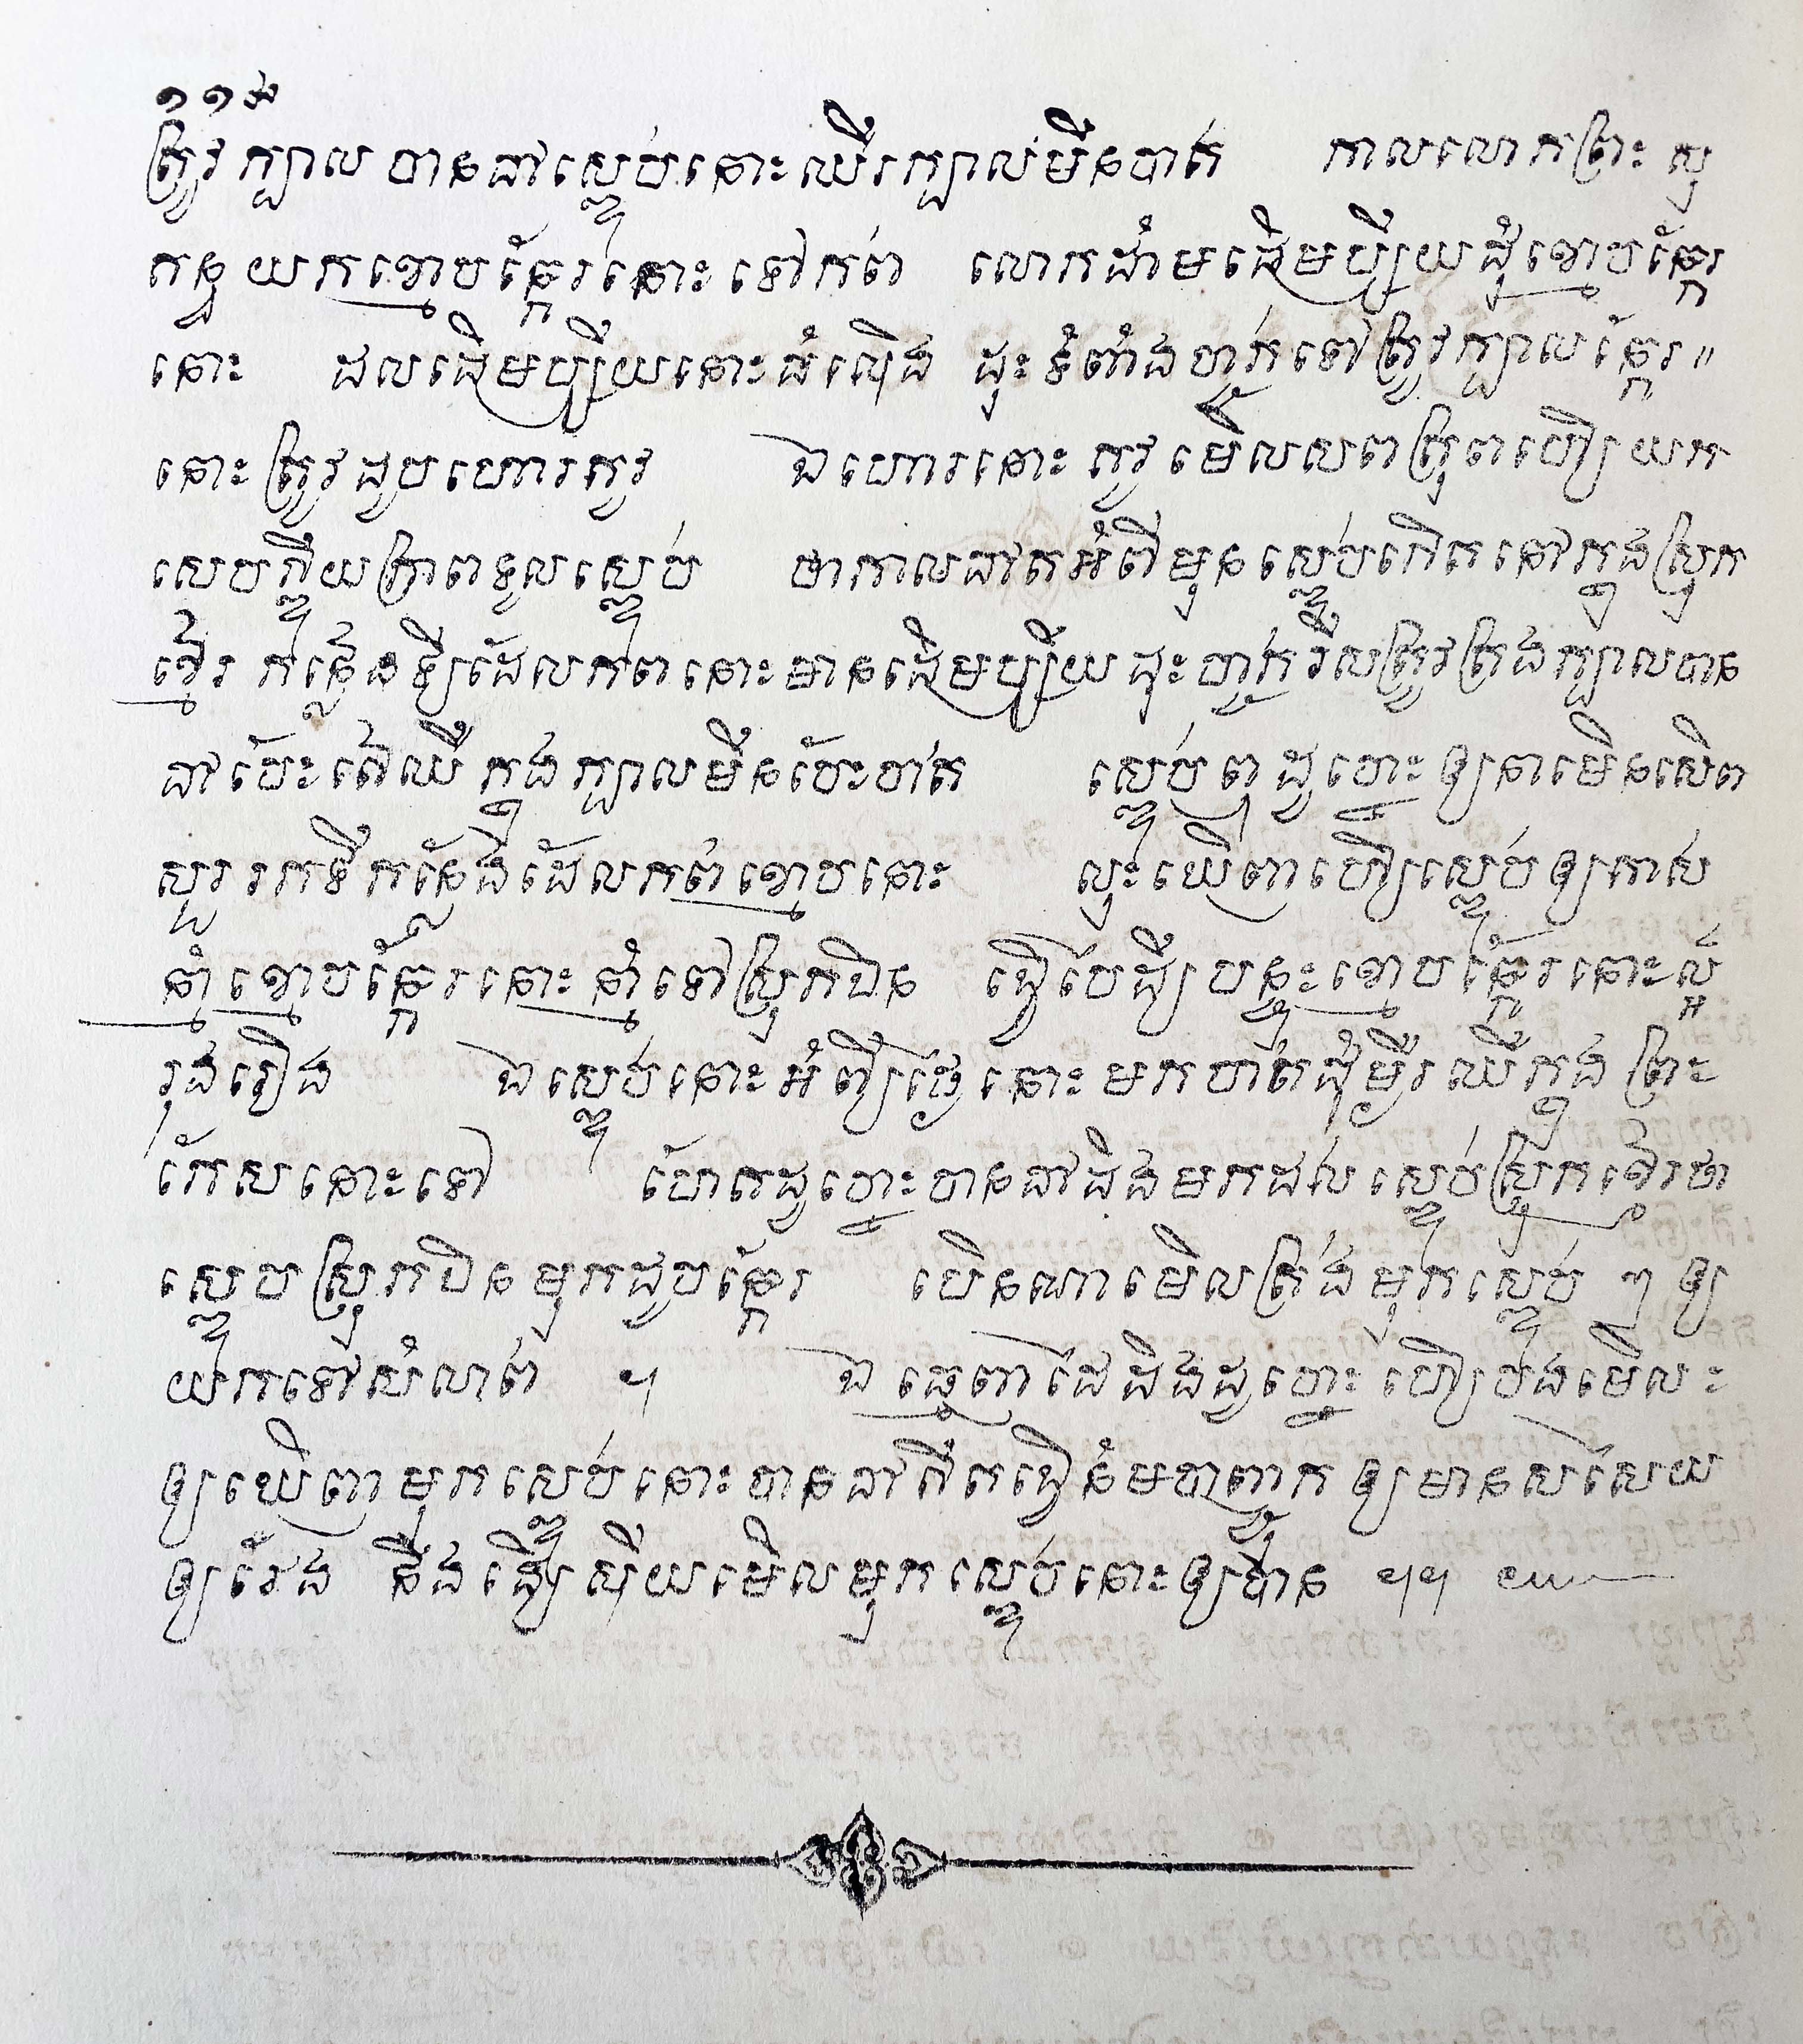 ១១៨
ត្រូវក្បាល បានជាស្ដេចនោះឈឺរក្បាលមិនបាត់ កាលលោកព្រះសុ
កន្ធយកខ្មោចឆ្កែរនោះទៅកប់ លោកដាំមដើមឫស្សីយដុំខ្មោចឆ្កែរ
នោះ ដល់ដើមឫស្សីយនោះធំឡើង ដុះទំពាំងចាក់ទៅត្រូវក្បាលឆ្កែរ៕
នោះ ត្រូវដូចហោរគូរ ឯហោរនោះគូរមើលសព្វគ្រប់ហើយយក
សេចក្ដីយក្រាបទូលស្ដេច ថាកាលជាតអំពីមុនស្ដេចកើតនៅក្នុងស្រុក
ខ្មែរ កន្លែងឰដែលកប់នោះមានដើមឫស្សីយដុះចាក់រឹសត្រូវត្រង់ក្បាលបាន
ជាចេះតែឈឺក្នុងក្បាលមិនចេះបាត់ ស្ដេចពុដូច្នេះឲ្យនាមឺនសេព
សួររកទីកន្លែងដែលកប់ខ្មោចនោះ លុះឃើញហើយស្ដេចឲ្យកាស់
នាំខ្មោចឆ្កែរនោះនាំទៅស្រុកចិន ធ្វើចេដីយបន្ចុះខ្មោចឆ្កែរនោះល្អ
រុងរឿង ឯស្ដេចនោះអំពីថ្ងៃនោះមកបាត់ជុំងឺរឈឺក្នុងព្រះ
កែសនោះទៅ ហេតដូច្នេះបានជាដឹងមកដល់ស្ដេចស្រុកខ្មែរថា
ស្ដេចស្រុកចិនមុកដូចឆ្កែរ បើនណាមើលត្រង់មុកស្ដេច ៗឲ្យ
យកទៅសំលាប់ ។ ឯខ្មែញដែដឹងដូច្នេះហើយចង់មើលៈ
ឲ្យឃើញមុកស្ដេចនោះបានជាគឹតធ្វើនំមបញ្ចុក ឲ្យមានសរសៃយ
ឲ្យវែង នឹងងើយស៊ីយមើលមុកស្ដេចនោះឲ្យបាន ។។